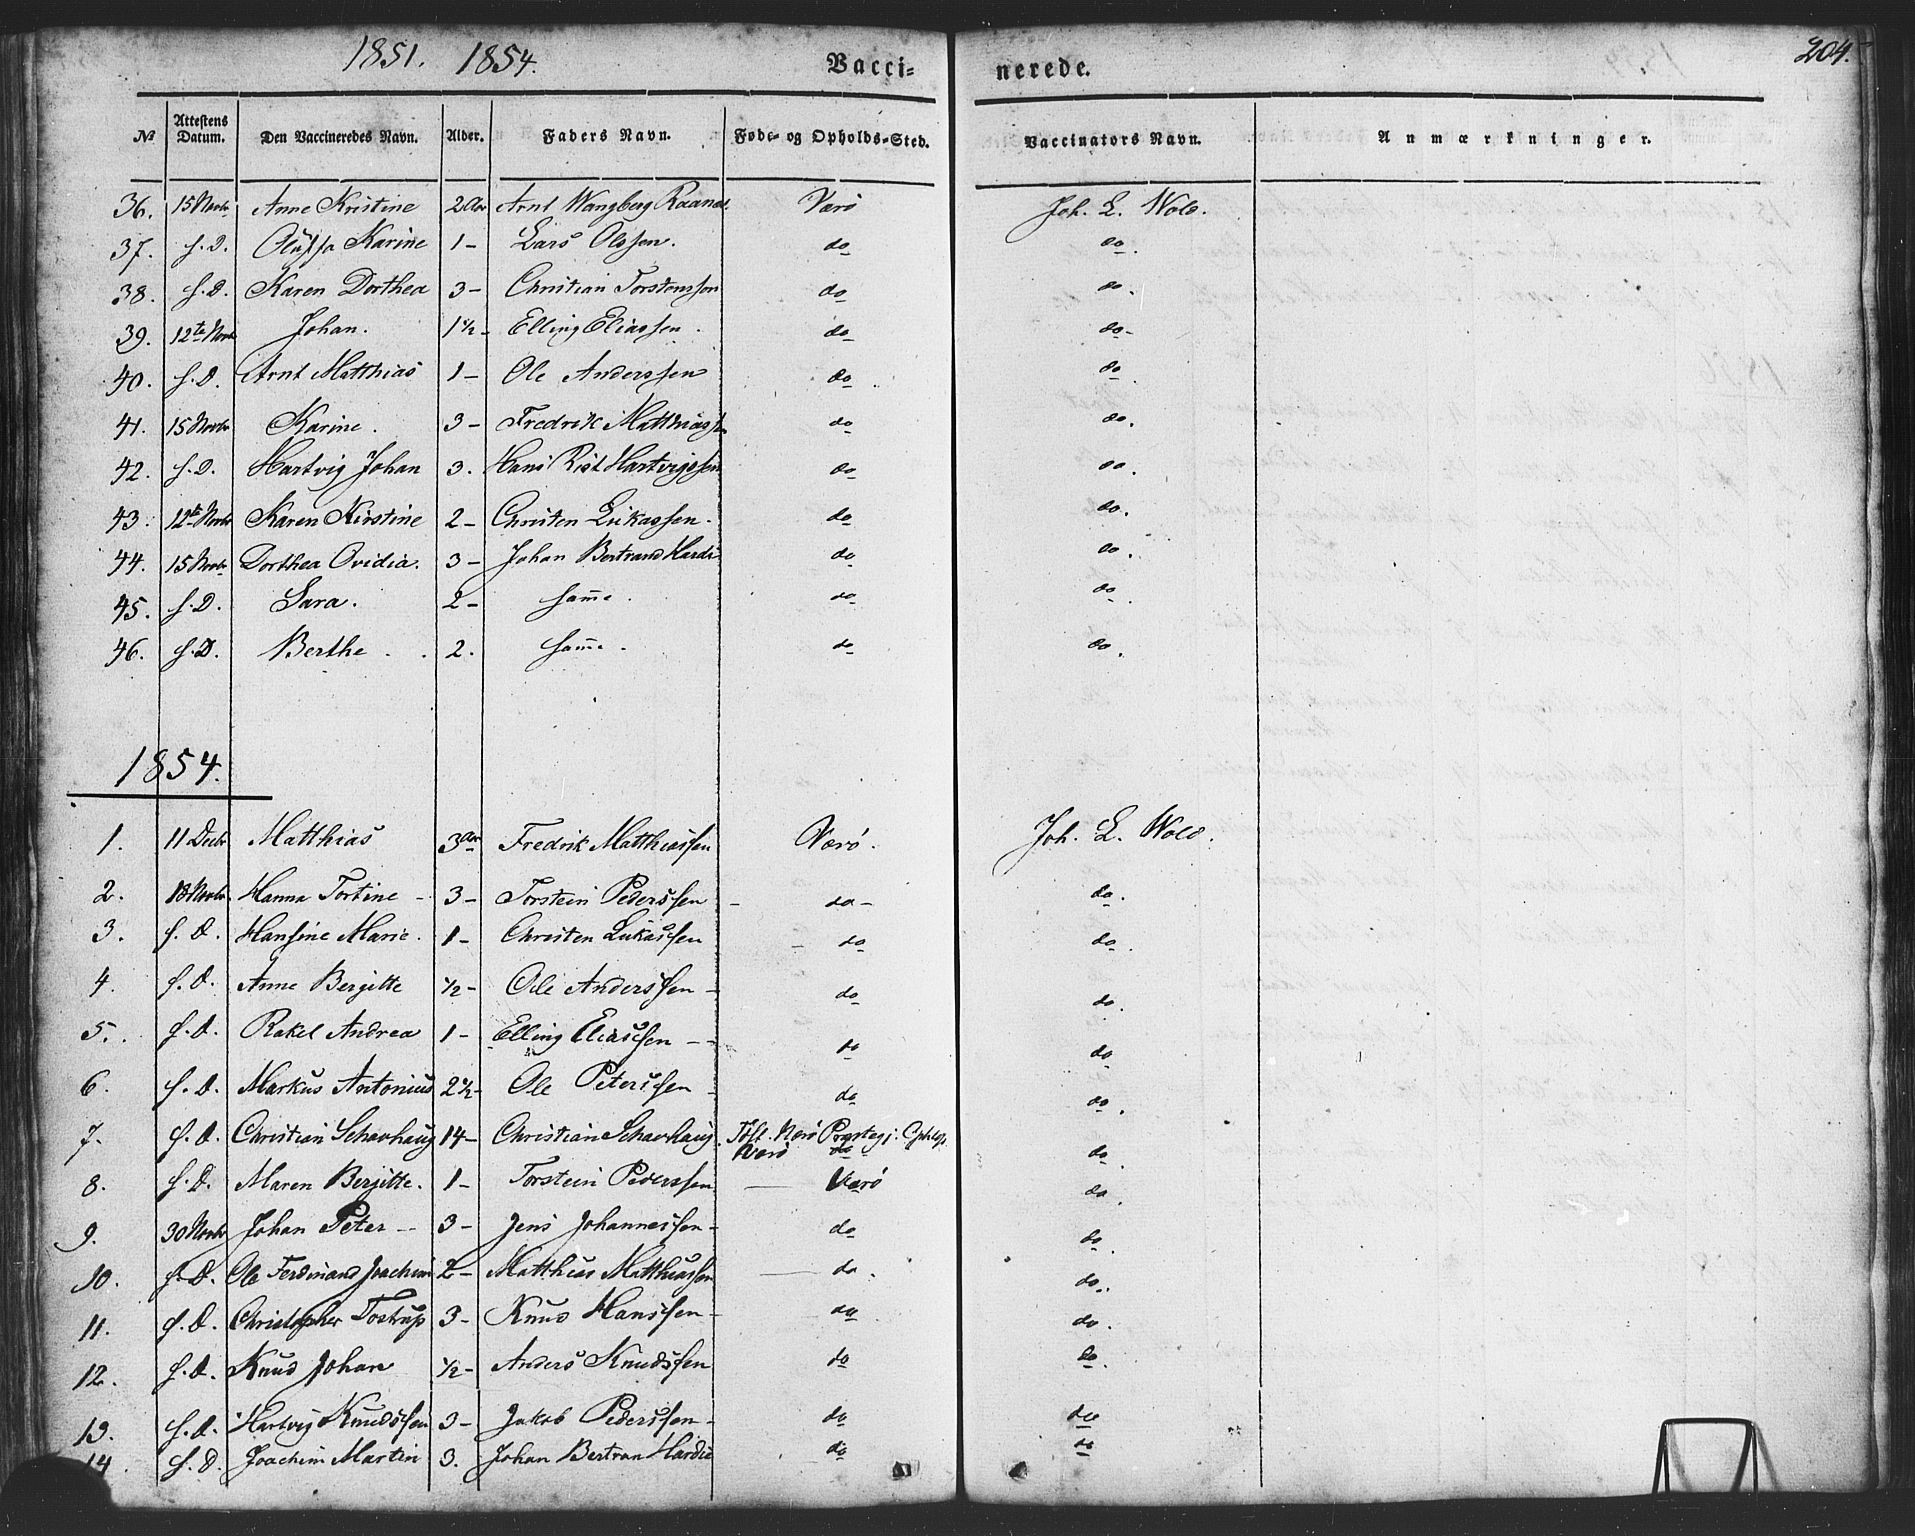 1851. 1854. Vacci- nerede. 204.
No Attestens Datum. Den Vaccineredes Navn. Alder. Faders Navn. Føde- og Opholds-Sted. Vaccinators Navn. Anmærkninger.
36. 15 Novbr Anne Kristine 2 Aar Arnt Wangberg Værö Joh. L. Wold.
37. s. D. Olufsa Karine 1 - Lars Olssen. do do.
38. s. D. Karen Dorthea 3 - Christian Torstenssen do do.
39. 12te Novbr Johan. 1 1/2 - Elling Eliassen. do do -
40. s. D. Arnt Matthias 1 - Ole Anderssen do do.
41. 15 Novbr Karine. 3 - Fredrik Matthiassen do do.
42. s. D. Hartvig Johan 3. Hans Rist Hartvigssen do do.
43. 12te Novbr Karen Kirstine 2 - Christen Lukassen. do do.
44. 15 Novbr Dorthea Ovidia. 3 - Johan Bertrand Hardi do do.
45. s. D. Sara. 2 - samme. do do.
46. s. D. Berthe. 2. samme. do do.
1854.
1. 11 Decbr Matthias 3 Aar Fredrik Matthiassen Værö. Joh. L. Wold.
2. 18 Novbr. Hanna Tortine - 3 - Torstein Pederssen - do - do.
3. s. D. Hansine Marie. 1 - Christen Lukassen - do do.
4. s. D. Anne Bergitte 1/2 - Ole Anderssen - do do.
5. s. D. Rakel Andrea 1 - Elling Eliassen - - do do
6. s. D. Markus Antonius 2 1/2 - Ole Peterssen - do do.
7. s. D. Christian Schavhaug 14 - Christian Schavhaug. Toft. Værö Præstegj: Ophlgs. do.
Værö do
8. s. D. Maren Bergitte. 1 - Torstein Pederssen — Værö do.
9. 30 Novbr Johan Peter - - 3 - Jens Johannessen - do do.
10. s. D. Ole Ferdinand Joachim 2 - Matthias Matthiassen — do. do..
11. s. D. Christopher Tostrup 3 - Knud Hanssen - do do.
12. s. D. Knud Johan 1/2 - Anders Knudssen do do.
13. s. D. Hartvig Knudssen 3 - Jakob Pederssen - do do
14. s. D. Joachim Martin 3. Johan Bertran Hardie do do